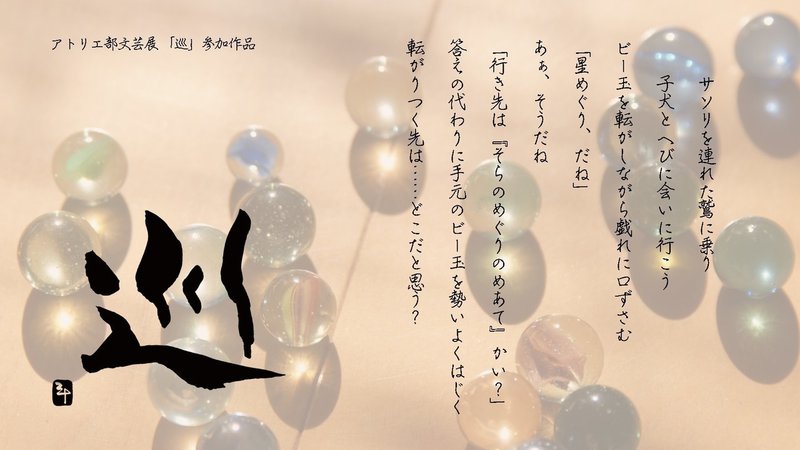 アトリエ部文芸展「巡」参加作品
サソリを連れた鷲に乗り
子犬とへびに会いに行こう
ビー玉を転がしながら戯れに口ずさむ
「星めぐり、だね」
あぁ、そうだね
「行き先は『そらのめぐりのめあて』かい？」
答えの代わりに手元のビー玉を勢いよくはじく
転がりつく先は……どこだと思う？
巡
斗